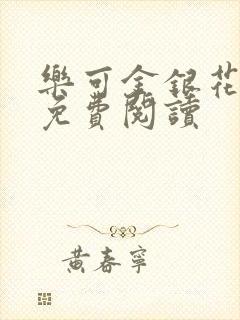 樂可金銀花
免費閱讀
黃春寧